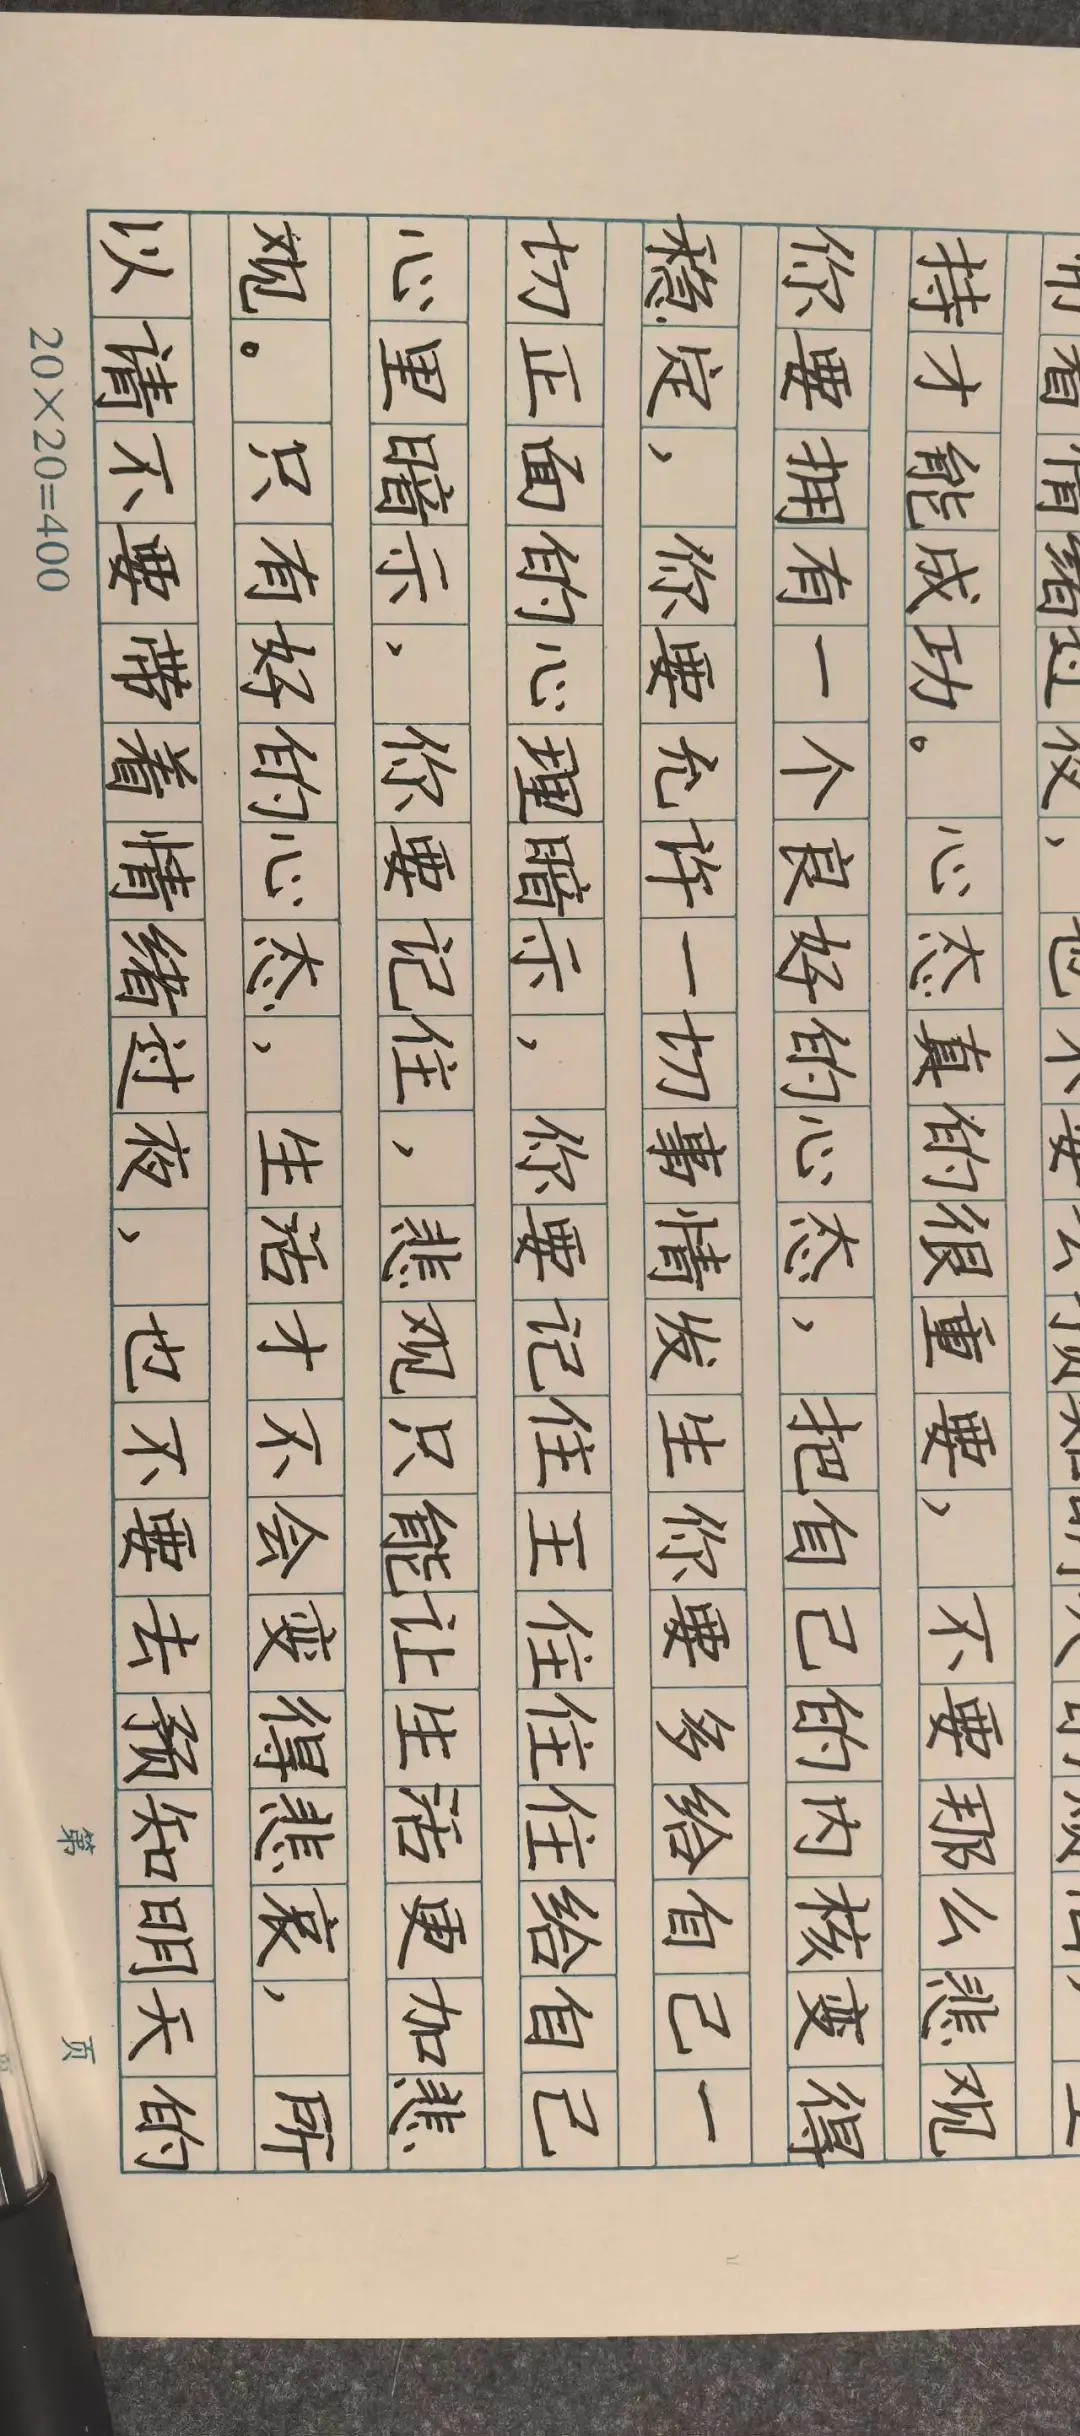 带着情绪过夜，也不要去预知明天的烦恼，
持才能成功。心态真的很重要，不要那么悲观
你要拥有一个良好的心态，把自己的内核变得
稳定，你要允许一切事情发生你要多给自己一
切正面的心理暗示，你要记住王住住住给自己
心里暗示，你要记住，悲观只能让生活更加悲
观。只有好的心态，生活才不会变得悲哀，所
以请不要带着情绪过夜，也不要去预知明天的
20×20=400 第 页